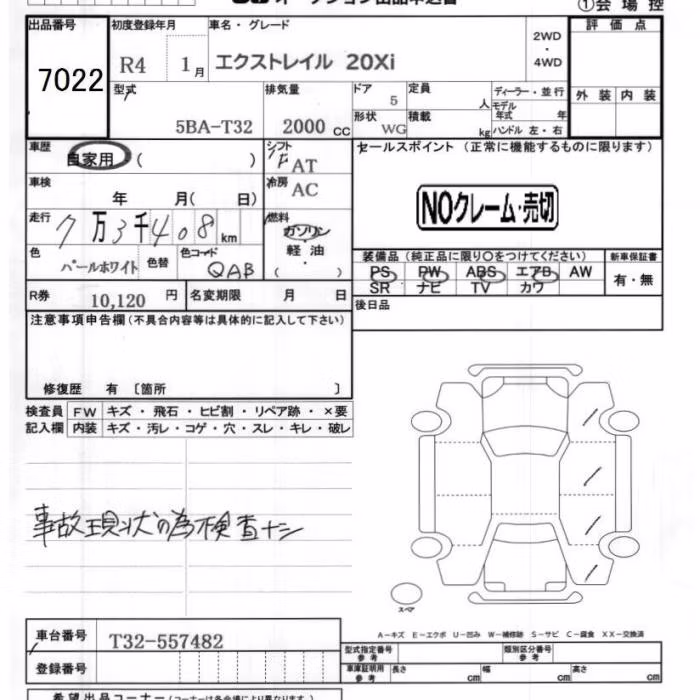 ①会場控
出品番号 初度登録年月 車名・グレード 評価点
7022 R4 1月 エクストレイル 20Xi 2WD・4WD
型式 排気量 ドア 定員 ディーラー・並行 外装 内装
5BA-T32 2000 cc 5 人 モデル年式 年
形状 WG 積載 kg ハンドル 左・右
車歴 自家用 ( ) シフト F AT セールスポイント (正常に機能するものに限ります)
車検 年 月( 日) 冷房 AC
NOクレーム・売切
走行 7万3千408km 燃料 ガソリン・軽油 ( )
色 パールホワイト 色替 色コード QAB
装備品 (純正品に限り○をつけてください) 新車保証書
PS PW ABS エアロ AW 有・無
SR ナビ TV カワ
R券 10,120円 名変期限 月 日 後日品
注意事項申告欄 (不具合内容等は具体的に記入して下さい)
修復歴 有 〔箇所 〕
検査員 FW キズ・飛石・ヒビ割・リペア跡・×要
記入欄 内装 キズ・汚レ・コゲ・穴・スレ・キレ・破レ
事故現状の為検査ナシ
スペア
A-キズ E-エクボ U-凹み W-補修跡 S-サビ C-腐食 XX-交換済
車台番号 T32-557482 型式指定番号 参考 類別区分番号 参考
登録番号 車庫証明用 参考 長さ cm 幅 cm 高さ cm
希望出品コーナー (コーナーは各会場により異なります。)